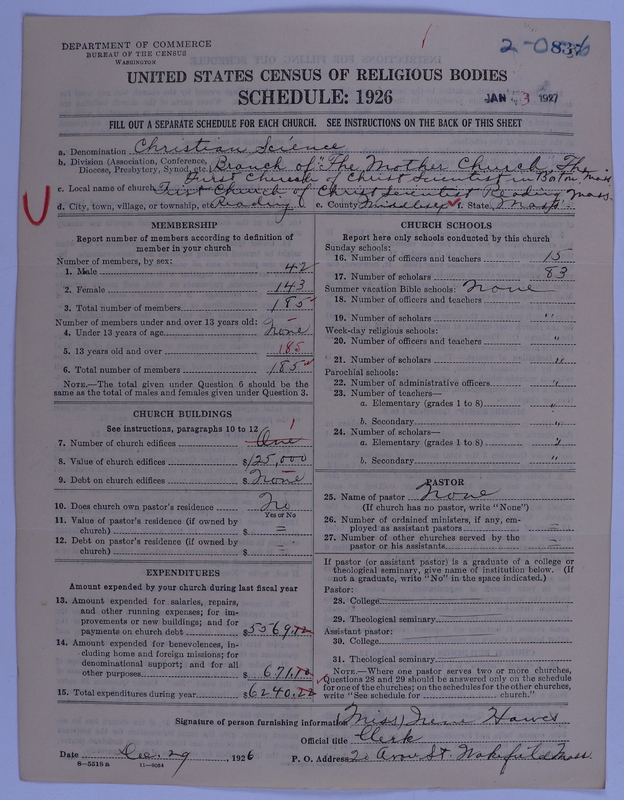 DEPARTMENT OF COMMERCE
BUREAU OF THE CENSUS
WASHINGTON
UNITED STATES CENSUS OF RELIGIOUS BODIES
SCHEDULE: 1926
JAN 3 1927
FILL OUT A SEPARATE SCHEDULE FOR EACH CHURCH. SEE INSTRUCTIONS ON THE BACK OF THIS SHEET
a. Denomination Christian Science
b. Division (Association, Conference, Diocese, Presbytery, Synod, etc.) Branch of "The Mother Church, The
First Church of Christ Scientist in Boston, Mass.
c. Local name of church First Church of Christ Scientist Reading, Mass.
d. City, town, village, or township, etc. Reading e. County Middlesex f. State Mass.
MEMBERSHIP
Report number of members according to definition of
member in your church
Number of members, by sex:
1. Male 42
2. Female 143
3. Total number of members 185
Number of members under and over 13 years old:
4. Under 13 years of age none
5. 13 years old and over 185
6. Total number of members 185
NOTE.—The total given under Question 6 should be the
same as the total of males and females given under Question 3.
CHURCH BUILDINGS
See instructions, paragraphs 10 to 12
7. Number of church edifices One 1
8. Value of church edifices $ 125,000
9. Debt on church edifices $ none
10. Does church own pastor's residence No
Yes or No
11. Value of pastor's residence (if owned by
church) $ =
12. Debt on pastor's residence (if owned by
church) $ =
EXPENDITURES
Amount expended by your church during last fiscal year
13. Amount expended for salaries, repairs,
and other running expenses; for im-
provements or new buildings; and for
payments on church debt $ 5569.
14. Amount expended for benevolences, in-
cluding home and foreign missions; for
denominational support; and for all
other purposes $ 671.
15. Total expenditures during year $ 6240.
CHURCH SCHOOLS
Report here only schools conducted by this church
Sunday schools:
16. Number of officers and teachers 15
17. Number of scholars 83
Summer vacation Bible schools: none
18. Number of officers and teachers
19. Number of scholars "
Week-day religious schools:
20. Number of officers and teachers "
21. Number of scholars "
Parochial schools:
22. Number of administrative officers "
23. Number of teachers—
a. Elementary (grades 1 to 8) "
b. Secondary "
24. Number of scholars—
a. Elementary (grades 1 to 8) "
b. Secondary "
PASTOR
25. Name of pastor None
(If church has no pastor, write "None")
26. Number of ordained ministers, if any, em-
ployed as assistant pastors
27. Number of other churches served by the
pastor or his assistants
If pastor (or assistant pastor) is a graduate of a college or
theological seminary, give name of institution below. (If
not a graduate, write "No" in the space indicated.)
Pastor:
28. College
29. Theological seminary
Assistant pastor:
30. College
31. Theological seminary
NOTE.—Where one pastor serves two or more churches,
Questions 28 and 29 should be answered only on the schedule
for one of the churches; on the schedules for the other churches,
write "See schedule for church."
Signature of person furnishing information Miss Irene Hawes
Official title Clerk
Date Dec. 29, 1926 P. O. Address St. Wakefield Mass.
8-5518 a 11-9084